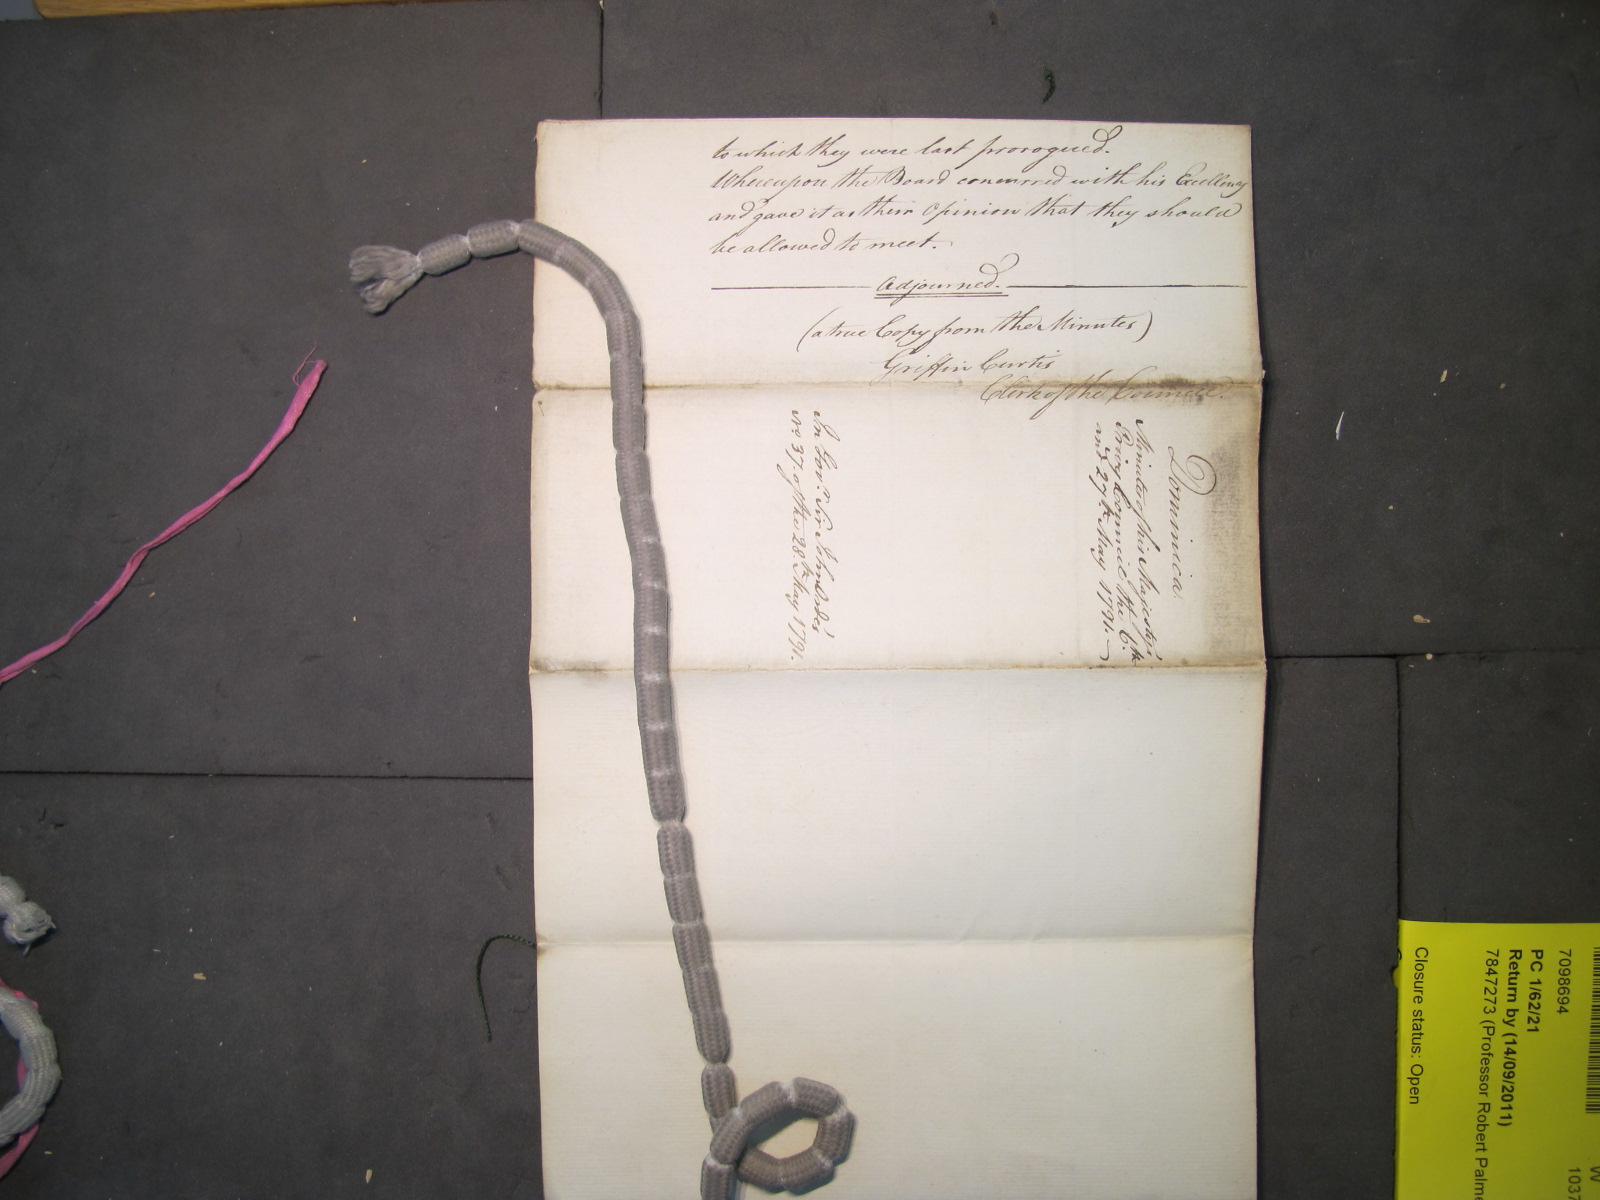 to which they were last prorogued.
Whereupon the Board concurred with his Excellency
and gave it as their Opinion that they should
be allowed to meet.
Adjourned.
(a true Copy from the Minutes)
Griffin Curtis
Clerk of the Council.
Dominica.
Minutes of his Majesty's
Privy Council the 6.th
and 27.th May 1791.
In Gov.r Sir John Orde's
No 37. of the 28.th May 1791.
7098694
PC 1/62/21
Return by (14/09/2011)
7847273 (Professor Robert Palme
Closure status: Open